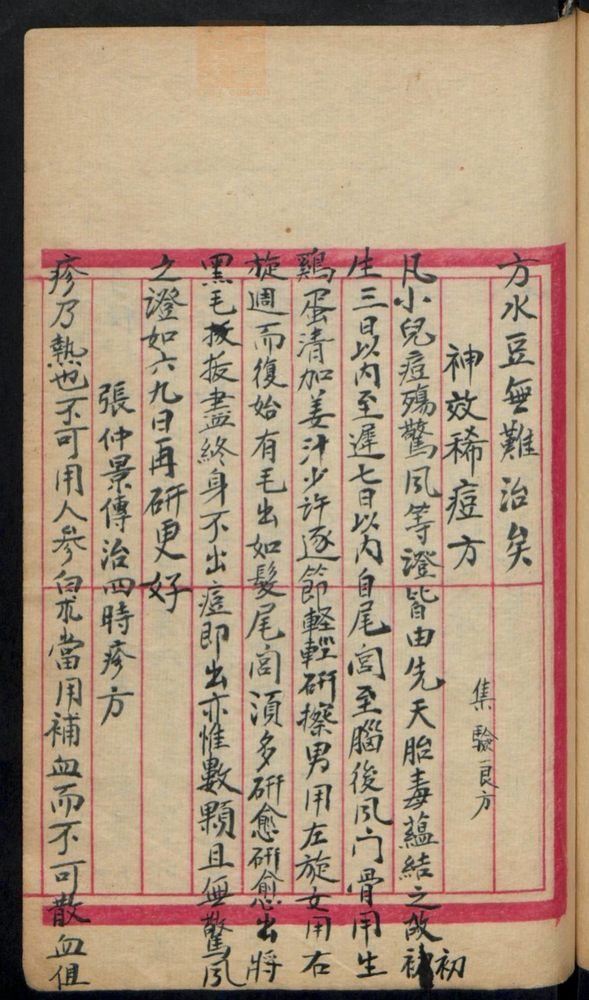 方水豆無難治矣
神效稀痘方
集驗良方
凡小兒痘殤驚風等證皆由先天胎毒蘊結之故初
生三日以內至遲七日以內自尾宮至腦後风门骨用生
鷄蛋清加姜汁少许逐節軽輕研擦男用左旋女用右
旋週而復始有毛出如髮尾宮湏多研愈研愈出將
黑毛拔拔盡終身不出痘即出亦惟數顆且無驚风
之證如六九日再研更好
張仲景傳治四時疹方
疹乃熱也不可用人參白朮當用補血而不可散血但